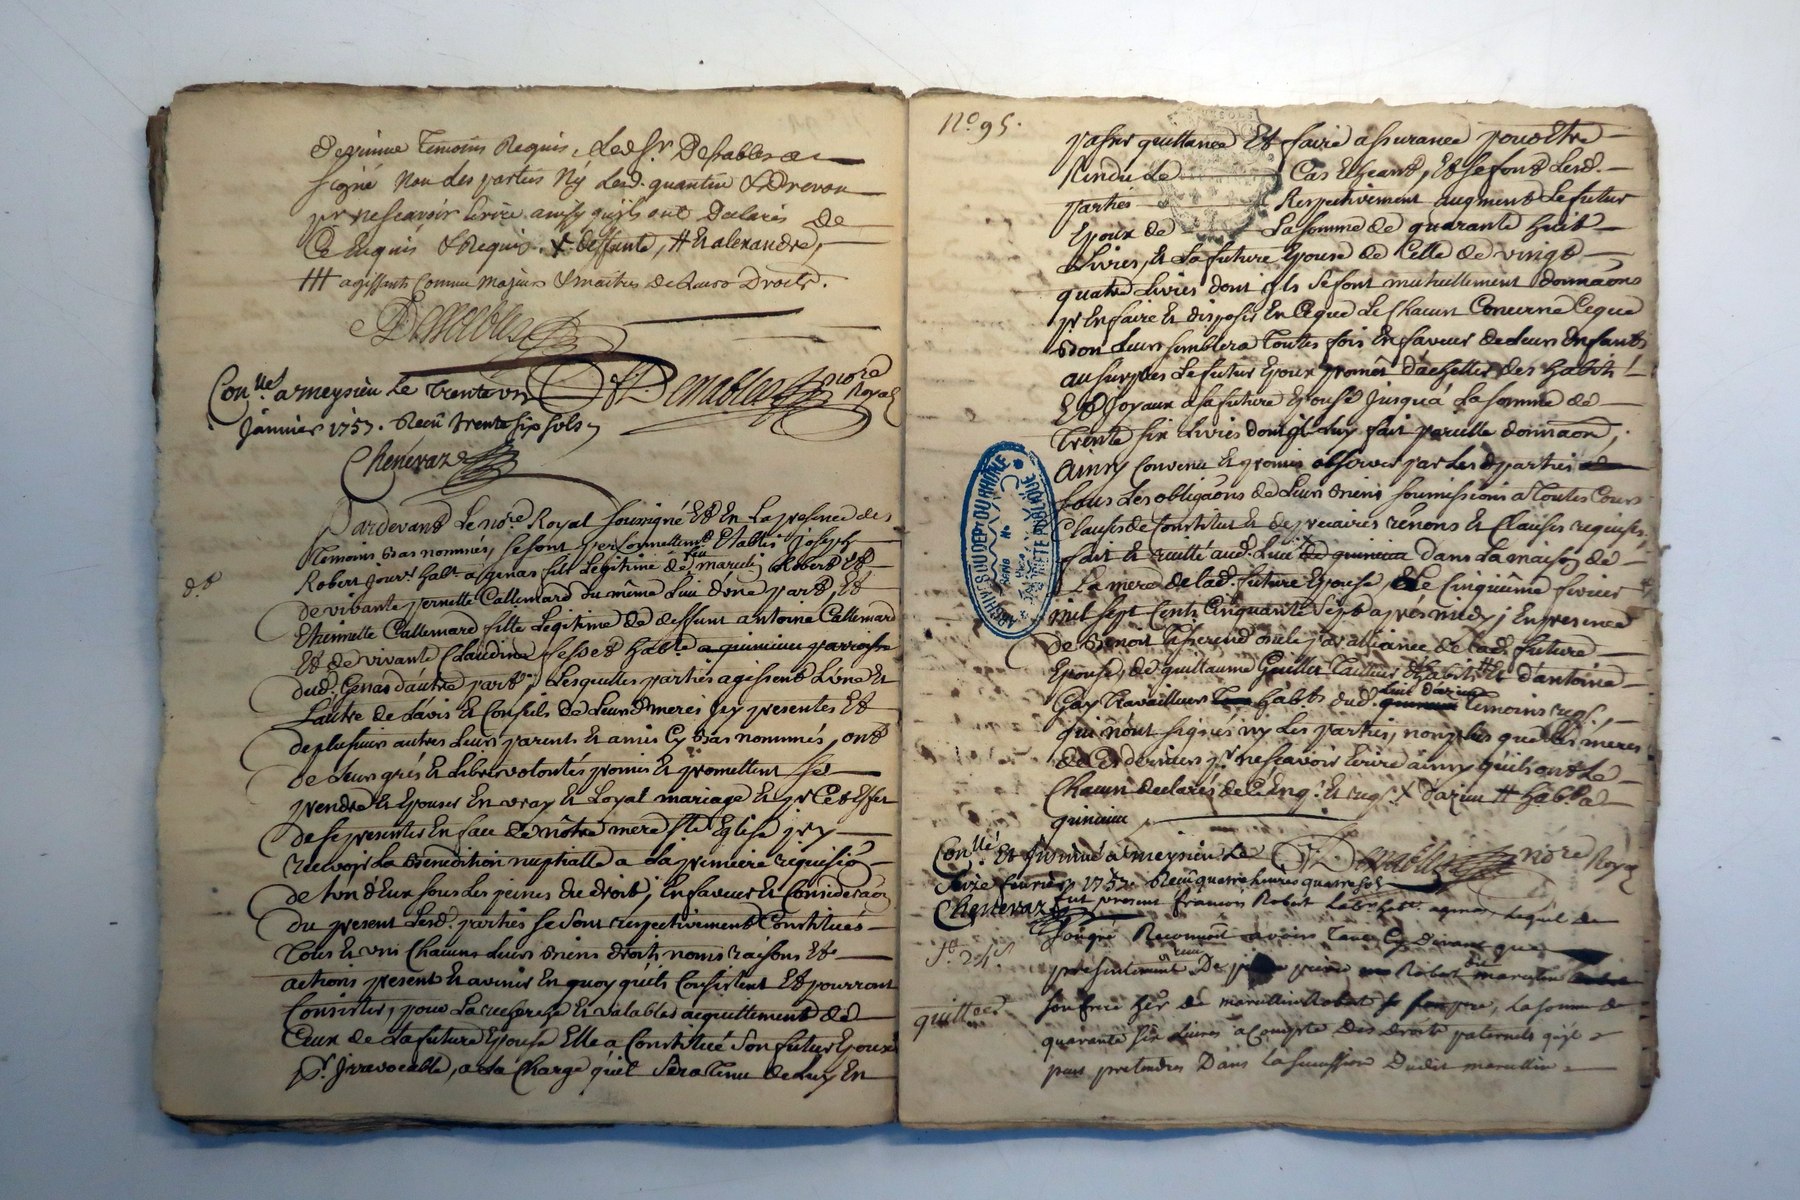 temoins Requis, Led. Sr. Desables a
signé non les parties ny Led. quantin
pr. ne scavoir écrire ainsy qu'ils ont Declarés de
Ce Enquis & Requis. X deffunte, # Et alexandre,
### agissants Comme Majeurs & maitres de Leurs Droits.
Desables
Conllé. a meysieu Le Trente un
Desables nore Royal
janvier 1757. Reçu trente six sols
Chenevaz
Pardevant Le nore. Royal soussigné Et En La presence des
temoins bas nommés, se sont personnellemt. Etablis Joseph
Robert jourr. habt. a genas fils Legitime de feu marcelin Robert Et
de vivante pernette Callemard du même Lieu d'une part, Et
Etiennette Callemard fille Legitime de deffunt antoine Callemard
Et de vivante Claudine habte. a quincieu parroisse
dud. Genas d'autre part; Lesquelles parties agissent L'une Et
L'autre de L'avis Et Conseils de Leursd. meres jcy presentes Et
de plusieurs autres Leurs parents Et amis Cy bas nommés, ont
de Leurs grés Et Libres volontés promis Et promettent se
prendre Et Epouser En vray Et Loyal mariage Et pr. Cet Effet
de se presenter En face de nôtre mere Ste. Eglise pr. y
recevoir La benediction nuptialle a La premiere requision
de L'un d'Eux sous Les peines du droit; En faveur Et Consideraon
du present Lesd. parties se sont respectivement Constitués
Tous Et uns Chacuns Leurs biens droits noms raisons Et
actions present Et avenir En quoy qu'ils Consistent Et pourront
Consister, pour La recherche Et valables acquittement de
Ceux de La future Epouse Elle a Constitué son futur Epoux
pr. Jrrevocable, a La Charge qu'il sera tenu de Luy En
No. 95.
passer quittance Et faire assurance pour Etre
rendu Le Cas Echeant, Et se font Lesd.
parties Respectivement augment Le futur
Epoux de La somme de quarante huit
Livres, Et La future Epouse de Celle de vingt
quatre Livres dont jls se font mutuellement donnaons
pr. En faire Et disposer En Ce que Le Chacun Concerne Ce que
bon Leur semblera Toutes fois En faveur de Leurs Enfants
au surplus Le futur Epoux promet d'achetter des habits
Et Joyaux a sa future Epouse Jusqu'à La somme de
Trente six Livres dont jl Luy fait pareille donnaon,
ainsy Convenu Et promis observer par Lesd. parties
sous Les obligaons de Leurs biens soumissions a Toutes Cours
Clauses de Constitut Et de precaires rénons Et Clauses requises,
fait Et recitté aud. Lieu X de quincieu dans La maison de
La mere de Lad. future Epouse, Le Cinquiême fevrier
mil sept Cents Cinquante Sept apres midy; En presence
de Benoit oncle par alliance de Lad. future
Epouse, de guillaume Guillet Tailleur d'habits # Et d'antoine
Gay Travailleur habts. dud. Lieu d'azieu Temoins reqs.,
qui n'ont signés ny Les parties, non plus que Les meres
de Ces derniers pr. ne scavoir Ecrire ainsy qu'ils ont Le
Chacun declarés de Ce Enq. Et reqs. X d'azieu # habt. a
quincieu
Conllé. Et insinué a meysieu Le
Desables nore Royal
Seize fevrier 1757. Reçu quatre Livres quatre sols
Chenevaz
fut present francois Robert Labr. habt. a genas, Lequel de
Son gré Reconnoit avoir Receu Cy Devant que
presentement De Robert marcelin
son frere her. de marcellin Robert La somme de
quarante six Livres a Compte Des Droits paternels qu'il
peut pretendre Dans La succession Dudit marcellin
quittce.
ARCHIVES DU DEPT DU RHÔNE